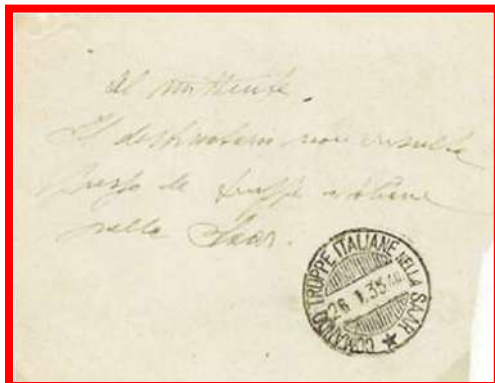 Al mittente.
Il destinatario non risulta
presso le truppe italiane
nella Saar.
COMANDO TRUPPE ITALIANE NELLA SAAR
26.1.35